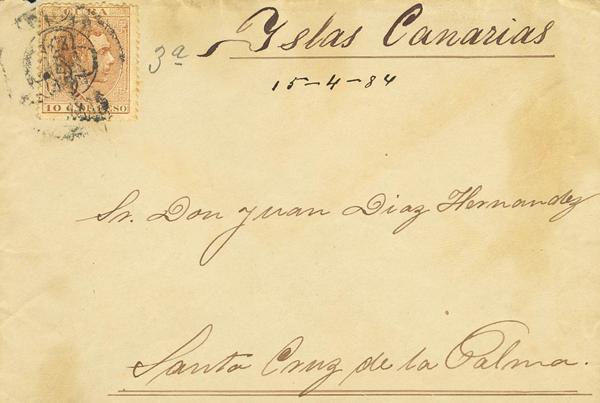 3ª Yslas Canarias
15-4-84
10 C. DE PESO
Sr. Don Juan Diaz Hernandez
Santa Cruz de la Palma.